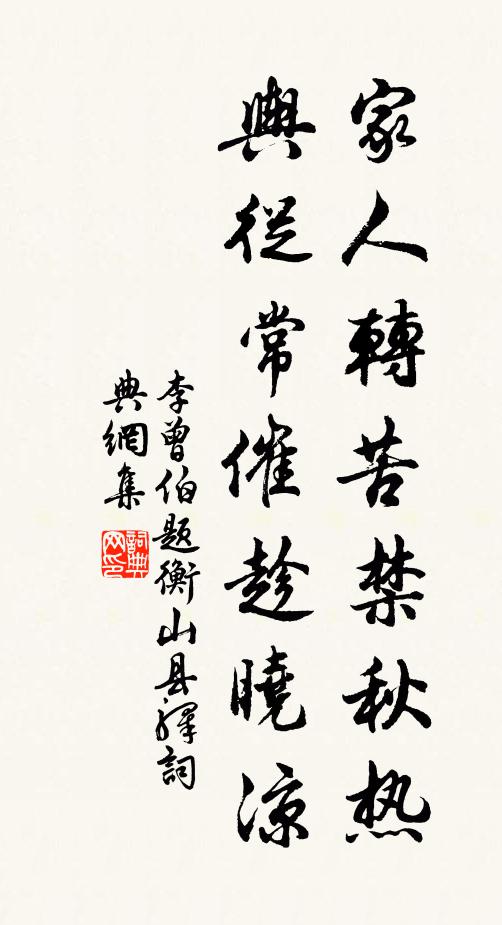 家人轉苦禁秋热
輿從常催趁曉涼
李曾伯题衡山县驛詞
典網集
詞典
网印